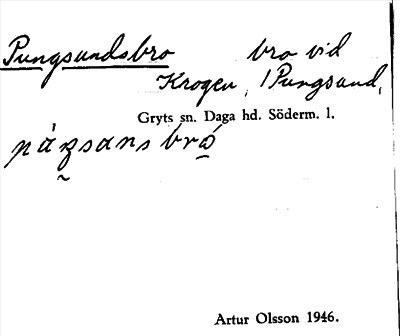 Pungsundsbro bro vid
Krogen, / Pungsund,
Gryts sn. Daga hd. Söderm. l.
Artur Olsson 1946.